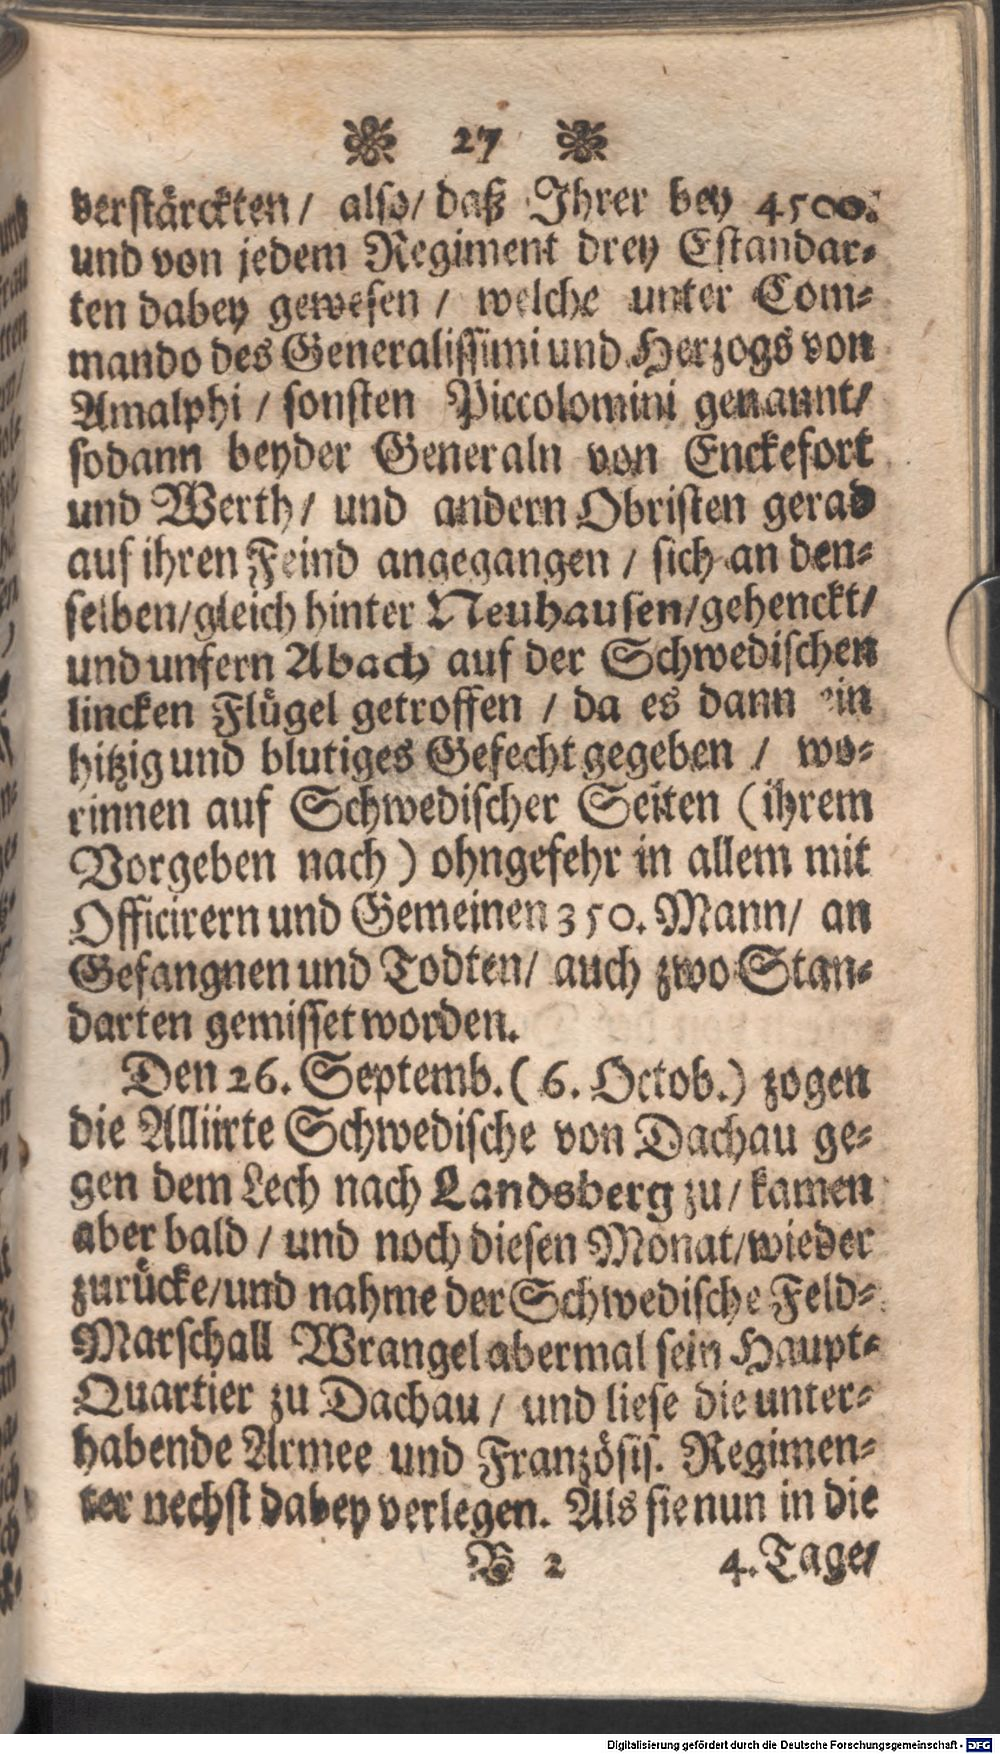 27
verstärckten / also / daß Ihrer bey 4500.
und von jedem Regiment drey Estandar-
ten dabey gewesen / welche unter Com-
mando des Generalissimi und Herzogs von
Amalphi / sonsten Piccolomini genannt /
sodann beyder Generaln von Enckefort
und Werth / und andern Obristen gerad
auf ihren Feind angegangen / sich an den-
selben / gleich hinter Neuhausen / gehenckt /
und unfern Abach auf der Schwedischen
lincken Flügel getroffen / da es dann ein
hitzig und blutiges Gefecht gegeben / wo-
rinnen auf Schwedischer Seiten ( ihrem
Vorgeben nach ) ohngefehr in allem mit
Officirern und Gemeinen 350. Mann / an
Gefangnen und Todten / auch zwo Stan-
darten gemisset worden.
Den 26. Septemb. ( 6. Octob. ) zogen
die Alliirte Schwedische von Dachau ge-
gen dem Lech nach Landsberg zu / kamen
aber bald / und noch diesen Monat / wieder
zurücke / und nahme der Schwedische Feld-
Marschall Wrangel abermal sein Haupt-
Quartier zu Dachau / und liese die unter-
habende Armee und Französis. Regimen-
ter nechst dabey verlegen. Als sie nun in die
B 2 4. Tage /
Digitalisierung gefördert durch die Deutsche Forschungsgemeinschaft - DFG